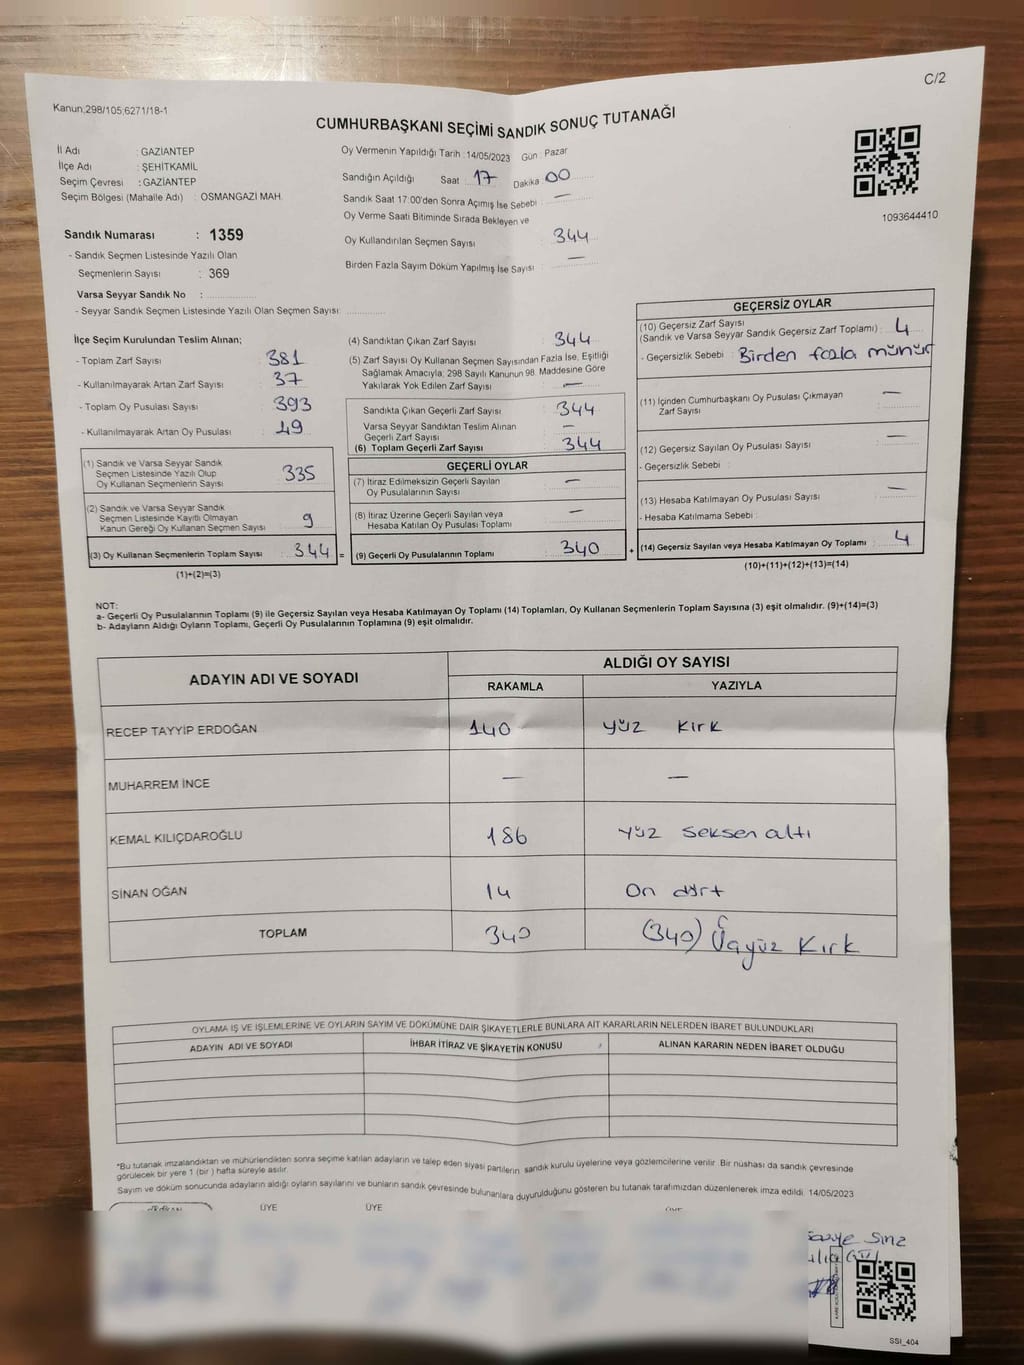 C/2
Kanun;298/105;6271/18-1
CUMHURBAŞKANI SEÇİMİ SANDIK SONUÇ TUTANAĞI
İl Adı : GAZİANTEP
İlçe Adı : ŞEHİTKAMİL
Seçim Çevresi : GAZİANTEP
Seçim Bölgesi (Mahalle Adı) : OSMANGAZİ MAH.
Sandık Numarası : 1359
- Sandık Seçmen Listesinde Yazılı Olan
Seçmenlerin Sayısı : 369
Varsa Seyyar Sandık No :
- Seyyar Sandık Seçmen Listesinde Yazılı Olan Seçmen Sayısı:
Oy Vermenin Yapıldığı Tarih : 14/05/2023 Gün : Pazar
Sandığın Açıldığı Saat 17 Dakika 00
Sandık Saat 17:00'den Sonra Açımış İse Sebebi : —
Oy Verme Saati Bitiminde Sırada Bekleyen ve
Oy Kullandırılan Seçmen Sayısı 344
Birden Fazla Sayım Döküm Yapılmış İse Sayısı : —
1093644410
İlçe Seçim Kurulundan Teslim Alınan;
- Toplam Zarf Sayısı 381
- Kullanılmayarak Artan Zarf Sayısı 37
- Toplam Oy Pusulası Sayısı 393
- Kullanılmayarak Artan Oy Pusulası 49
(1) Sandık ve Varsa Seyyar Sandık
Seçmen Listesinde Yazılı Olup
Oy Kullanan Seçmenlerin Sayısı 335
(2) Sandık ve Varsa Seyyar Sandık
Seçmen Listesinde Kayıtlı Olmayan
Kanun Gereği Oy Kullanan Seçmen Sayısı 9
(3) Oy Kullanan Seçmenlerin Toplam Sayısı : 344 =
(1)+(2)=(3)
(4) Sandıktan Çıkan Zarf Sayısı 344
(5) Zarf Sayısı Oy Kullanan Seçmen Sayısından Fazla İse, Eşitliği
Sağlamak Amacıyla; 298 Sayılı Kanunun 98. Maddesine Göre
Yakılarak Yok Edilen Zarf Sayısı —
Sandıkta Çıkan Geçerli Zarf Sayısı 344
Varsa Seyyar Sandıktan Teslim Alınan
Geçerli Zarf Sayısı —
(6) Toplam Geçerli Zarf Sayısı 344
GEÇERLİ OYLAR
(7) İtiraz Edimeksizin Geçerli Sayılan
Oy Pusulalarının Sayısı —
(8) İtiraz Üzerine Geçerli Sayılan veya
Hesaba Katılan Oy Pusulası Toplamı —
(9) Geçerli Oy Pusulalarının Toplamı : 340 +
GEÇERSİZ OYLAR
(10) Geçersiz Zarf Sayısı
(Sandık ve Varsa Seyyar Sandık Geçersiz Zarf Toplamı) : 4
- Geçersizlik Sebebi : Birden fazla mühür
(11) İçinden Cumhurbaşkanı Oy Pusulası Çıkmayan
Zarf Sayısı —
(12) Geçersiz Sayılan Oy Pusulası Sayısı —
- Geçersizlik Sebebi :
(13) Hesaba Katılmayan Oy Pusulası Sayısı —
- Hesaba Katılmama Sebebi :
(14) Geçersiz Sayılan veya Hesaba Katılmayan Oy Toplamı : 4
(10)+(11)+(12)+(13)=(14)
NOT:
a- Geçerli Oy Pusulalarının Toplamı (9) ile Geçersiz Sayılan veya Hesaba Katılmayan Oy Toplamı (14) Toplamları, Oy Kullanan Seçmenlerin Toplam Sayısına (3) eşit olmalıdır. (9)+(14)=(3)
b- Adayların Aldığı Oyların Toplamı, Geçerli Oy Pusulalarının Toplamına (9) eşit olmalıdır.
ADAYIN ADI VE SOYADI ALDIĞI OY SAYISI
RAKAMLA YAZIYLA
RECEP TAYYİP ERDOĞAN 140 yüz kırk
MUHARREM İNCE — —
KEMAL KILIÇDAROĞLU 186 yüz seksen altı
SİNAN OĞAN 14 On dört
TOPLAM 340 (340) Üçyüz Kırk
OYLAMA İŞ VE İŞLEMLERİNE VE OYLARIN SAYIM VE DÖKÜMÜNE DAİR ŞİKAYETLERLE BUNLARA AİT KARARLARIN NELERDEN İBARET BULUNDUKLARI
ADAYIN ADI VE SOYADI İHBAR İTİRAZ VE ŞİKAYETİN KONUSU ALINAN KARARIN NEDEN İBARET OLDUĞU
*Bu tutanak imzalandıktan ve mühürlendikten sonra seçime katılan adayların ve talep eden siyasi partilerin, sandık kurulu üyelerine veya gözlemcilerine verilir. Bir nüshası da sandık çevresinde
görülecek bir yere 1 (bir ) hafta süreyle asılır.
Sayım ve döküm sonucunda adayların aldığı oyların sayılarını ve bunların sandık çevresinde bulunanlara duyurulduğunu gösteren bu tutanak tarafımızdan düzenlenerek imza edildi. 14/05/2023
ÜYE ÜYE
SSI_404